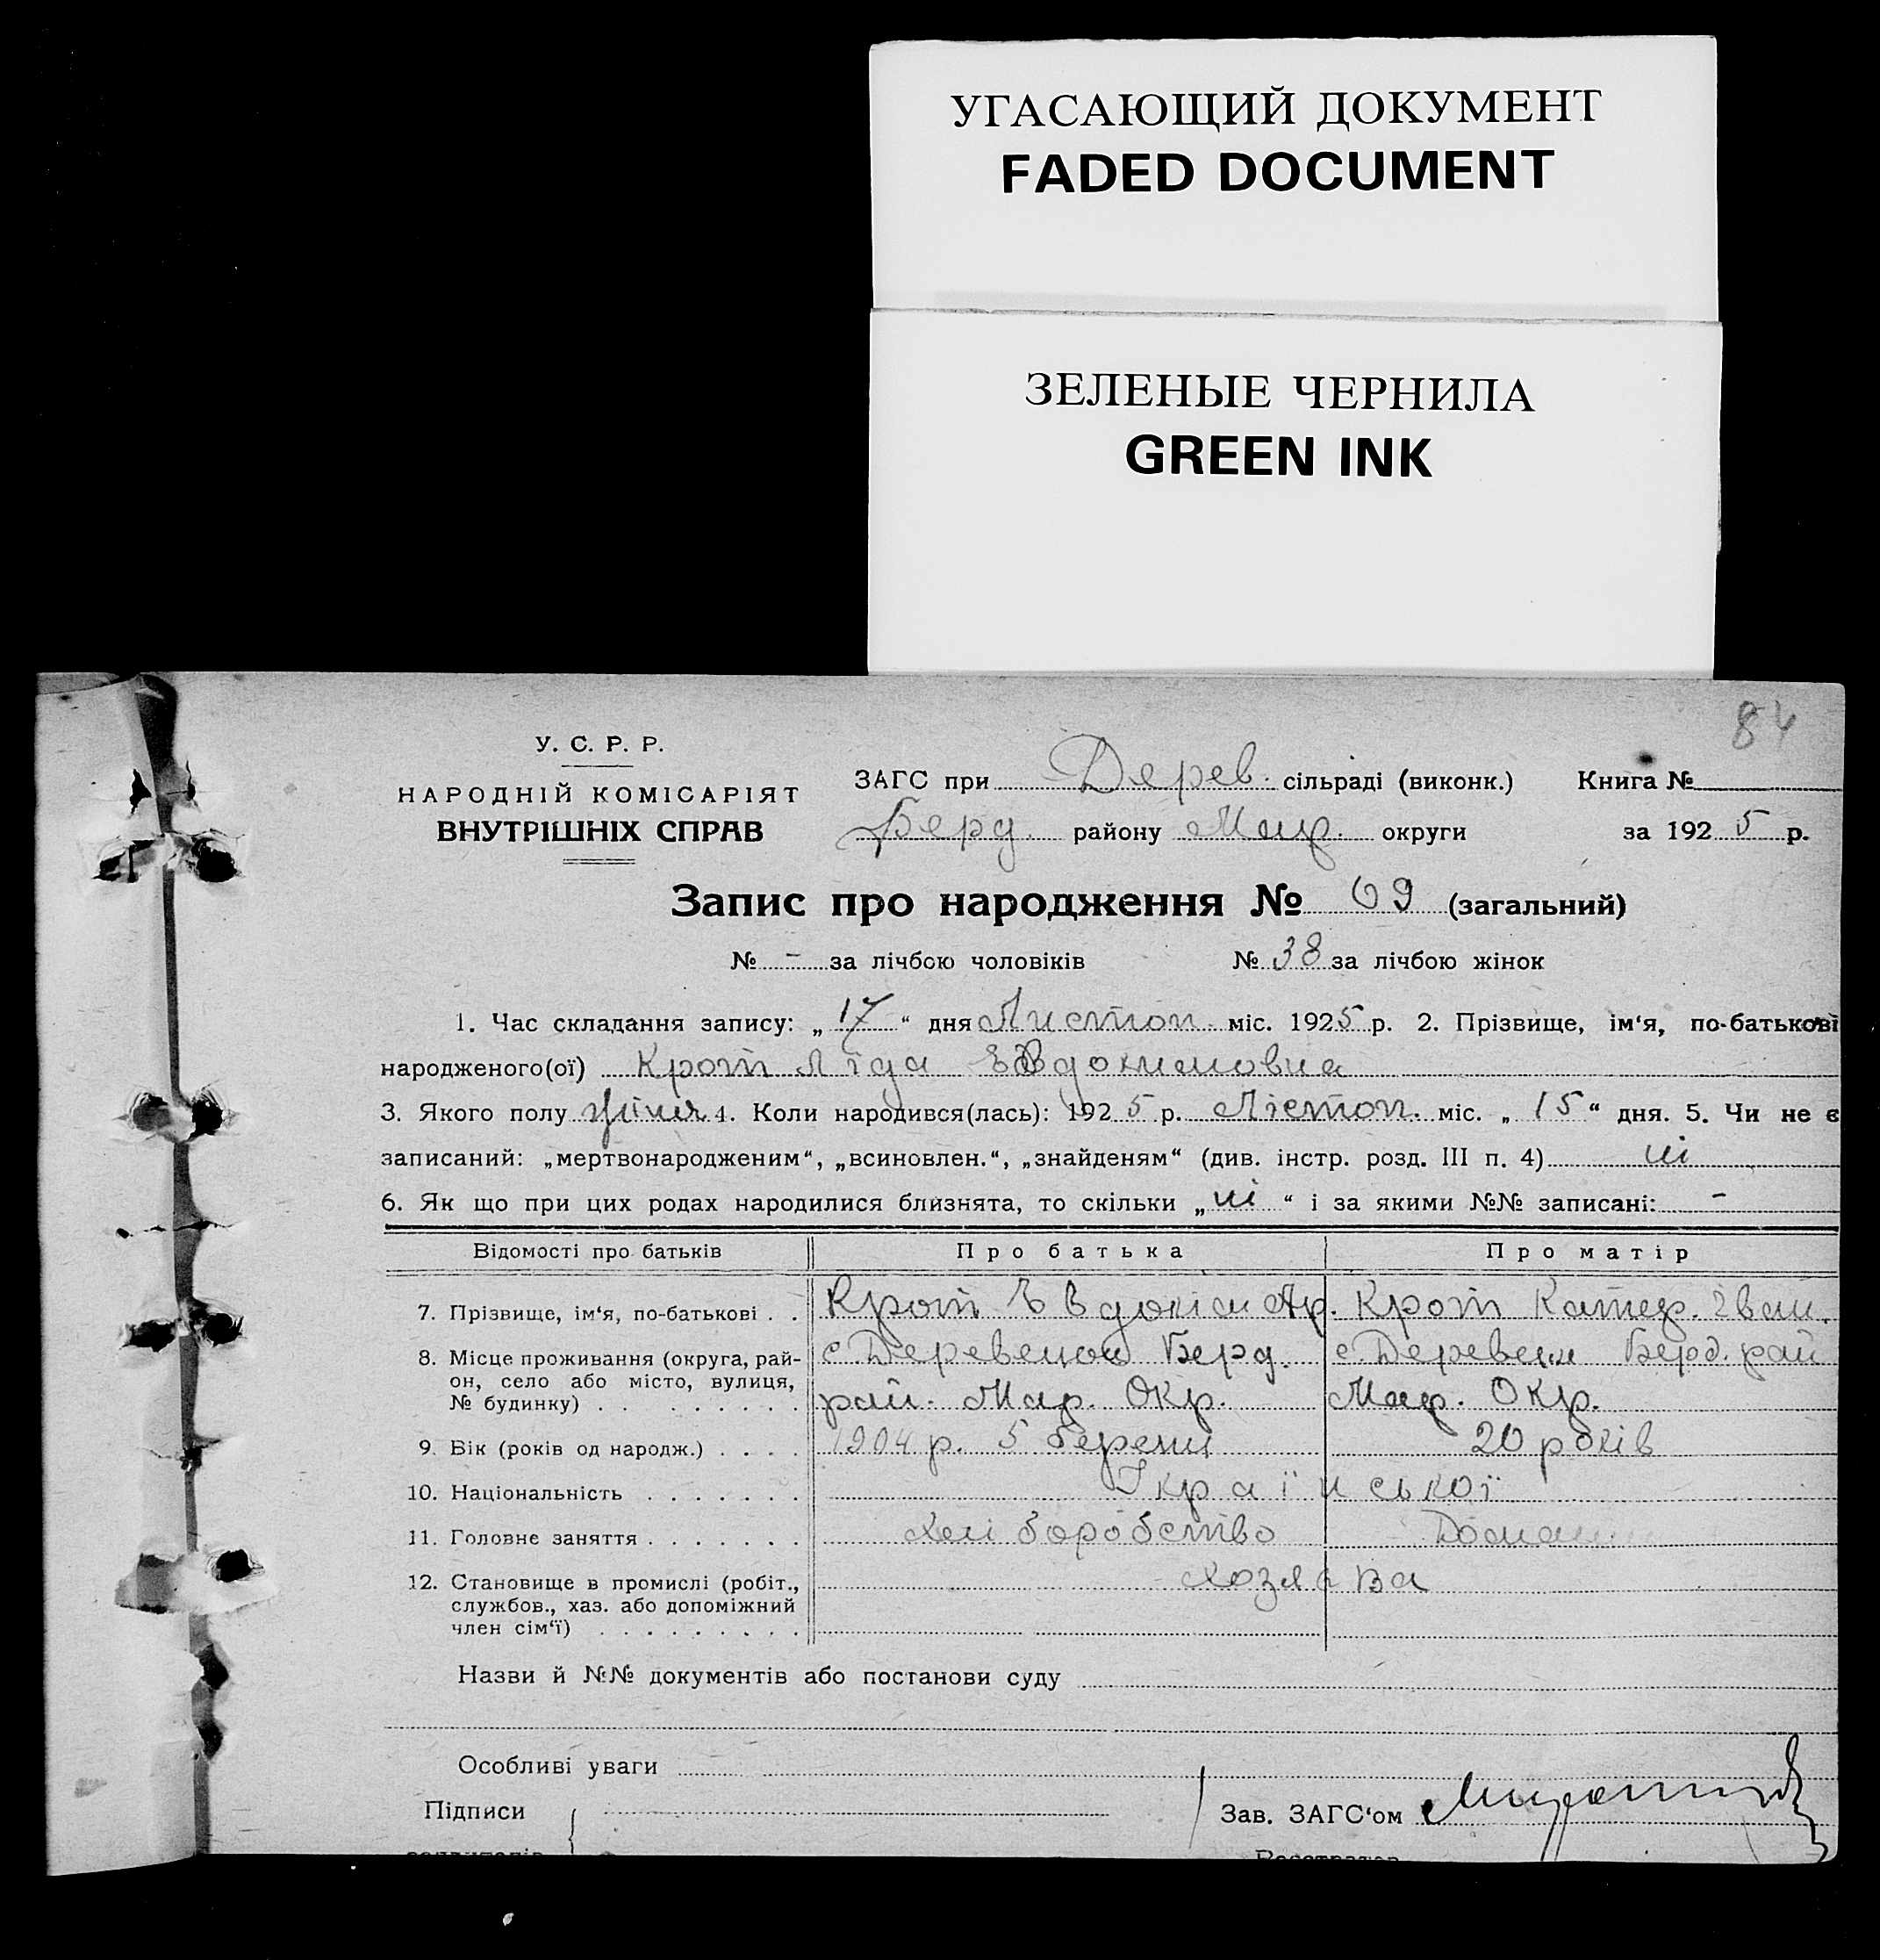 УГАСАЮЩИЙ ДОКУМЕНТ
FADED DOCUMENT
ЗЕЛЕНЫЕ ЧЕРНИЛА
GREEN INK
84
У. С. Р. Р.
НАРОДНІЙ КОМІСАРІЯТ
ВНУТРІШНІХ СПРАВ
ЗАГС при Дерев. сільраді (виконк.) Книга №
Берд. району Мар. округи за 1925 р.
Запис про народження № 69 (загальний)
№ - за лічбою чоловіків № 38 за лічбою жінок
1. Час складання запису: „17“ дня Листоп. міс. 1925 р. 2. Прізвище, ім‘я, по-батькові
народженого(ої) Крот Ліда Євдокимовна
3. Якого полу жіноч 4. Коли народився(лась): 1925 р. Лістоп. міс. „15“ дня. 5. Чи не є
записаний: „мертвонародженим“, „всиновлен.“, „знайденям“ (див. інстр. розд. III п. 4) ні
6. Як що при цих родах народилися близнята, то скільки „ні“ і за якими №№ записані: -
Відомості про батьків Про батька Про матір
7. Прізвище, ім‘я, по-батькові . . Крот Євдокім Ар. Крот Катер. Іван.
8. Місце проживання (округа, рай- с. Берд. с. Берд. рай
он, село або місто, вулиця, рай. Мар. Окр. Мар. Окр.
№ будинку) . . . . . . . .
9. Вік (років од народж.) . . . . 1904 р. 5 20 років
10. Національність . . . . . . . Української
11. Головне заняття . . . . . . . Хліборобство Дома
12. Становище в промислі (робіт., Хозяєва
службов., хаз. або допоміжний
член сім‘ї) . . . . . . . . .
Назви й №№ документів або постанови суду
Особливі уваги
Підписи Зав. ЗАГС‘ом